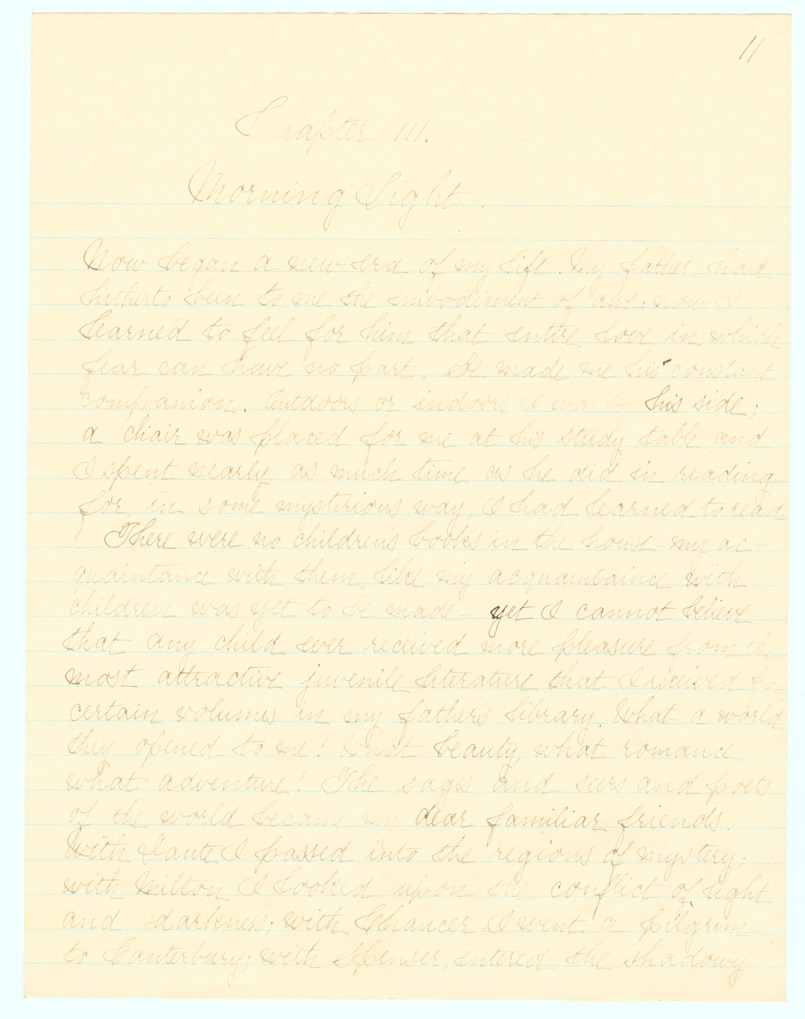 11
Chapter III.
Morning Light.
Now began a new era of my life. My father had
hitherto been to me the embodiment of awe: now I
learned to feel for him that entire love in which
fear can have no part. He made me his constant
companion. Outdoors or indoors I was by his side;
a chair was placed for me at his study table and
I spent nearly as much time as he did in reading
for, in some mysterious way, I had learned to read.
There were no children's books in the house - my ac-
quaintance with them like my acquaintaince with
children was yet to be made - yet I cannot believe
that any child ever received more pleasure from th
most attractive juvenile literature that I received
certain volumes in my father's library. What a world
they opened to me! What beauty, what romance,
what adventure! The sages and seers and poets
of the world became my dear familiar friends.
With Dante I passed into the regions of mystery;
with Milton I looked upon the conflict of light
and darkness; with Chaucer I went a pilgrim
to Canterbury; with Spenser, entered the shadowy